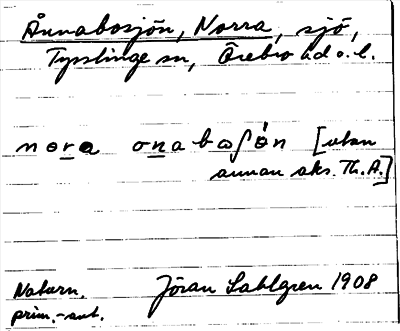 Ånnabosjön, Norra, sjö,
Tysslinge sn, Örebro hd o. l.
nɵra onabωʃɵ́n [utan
annan aks. Th. A.]
Naturn.
prim.-ant.
Jöran Sahlgren 1908